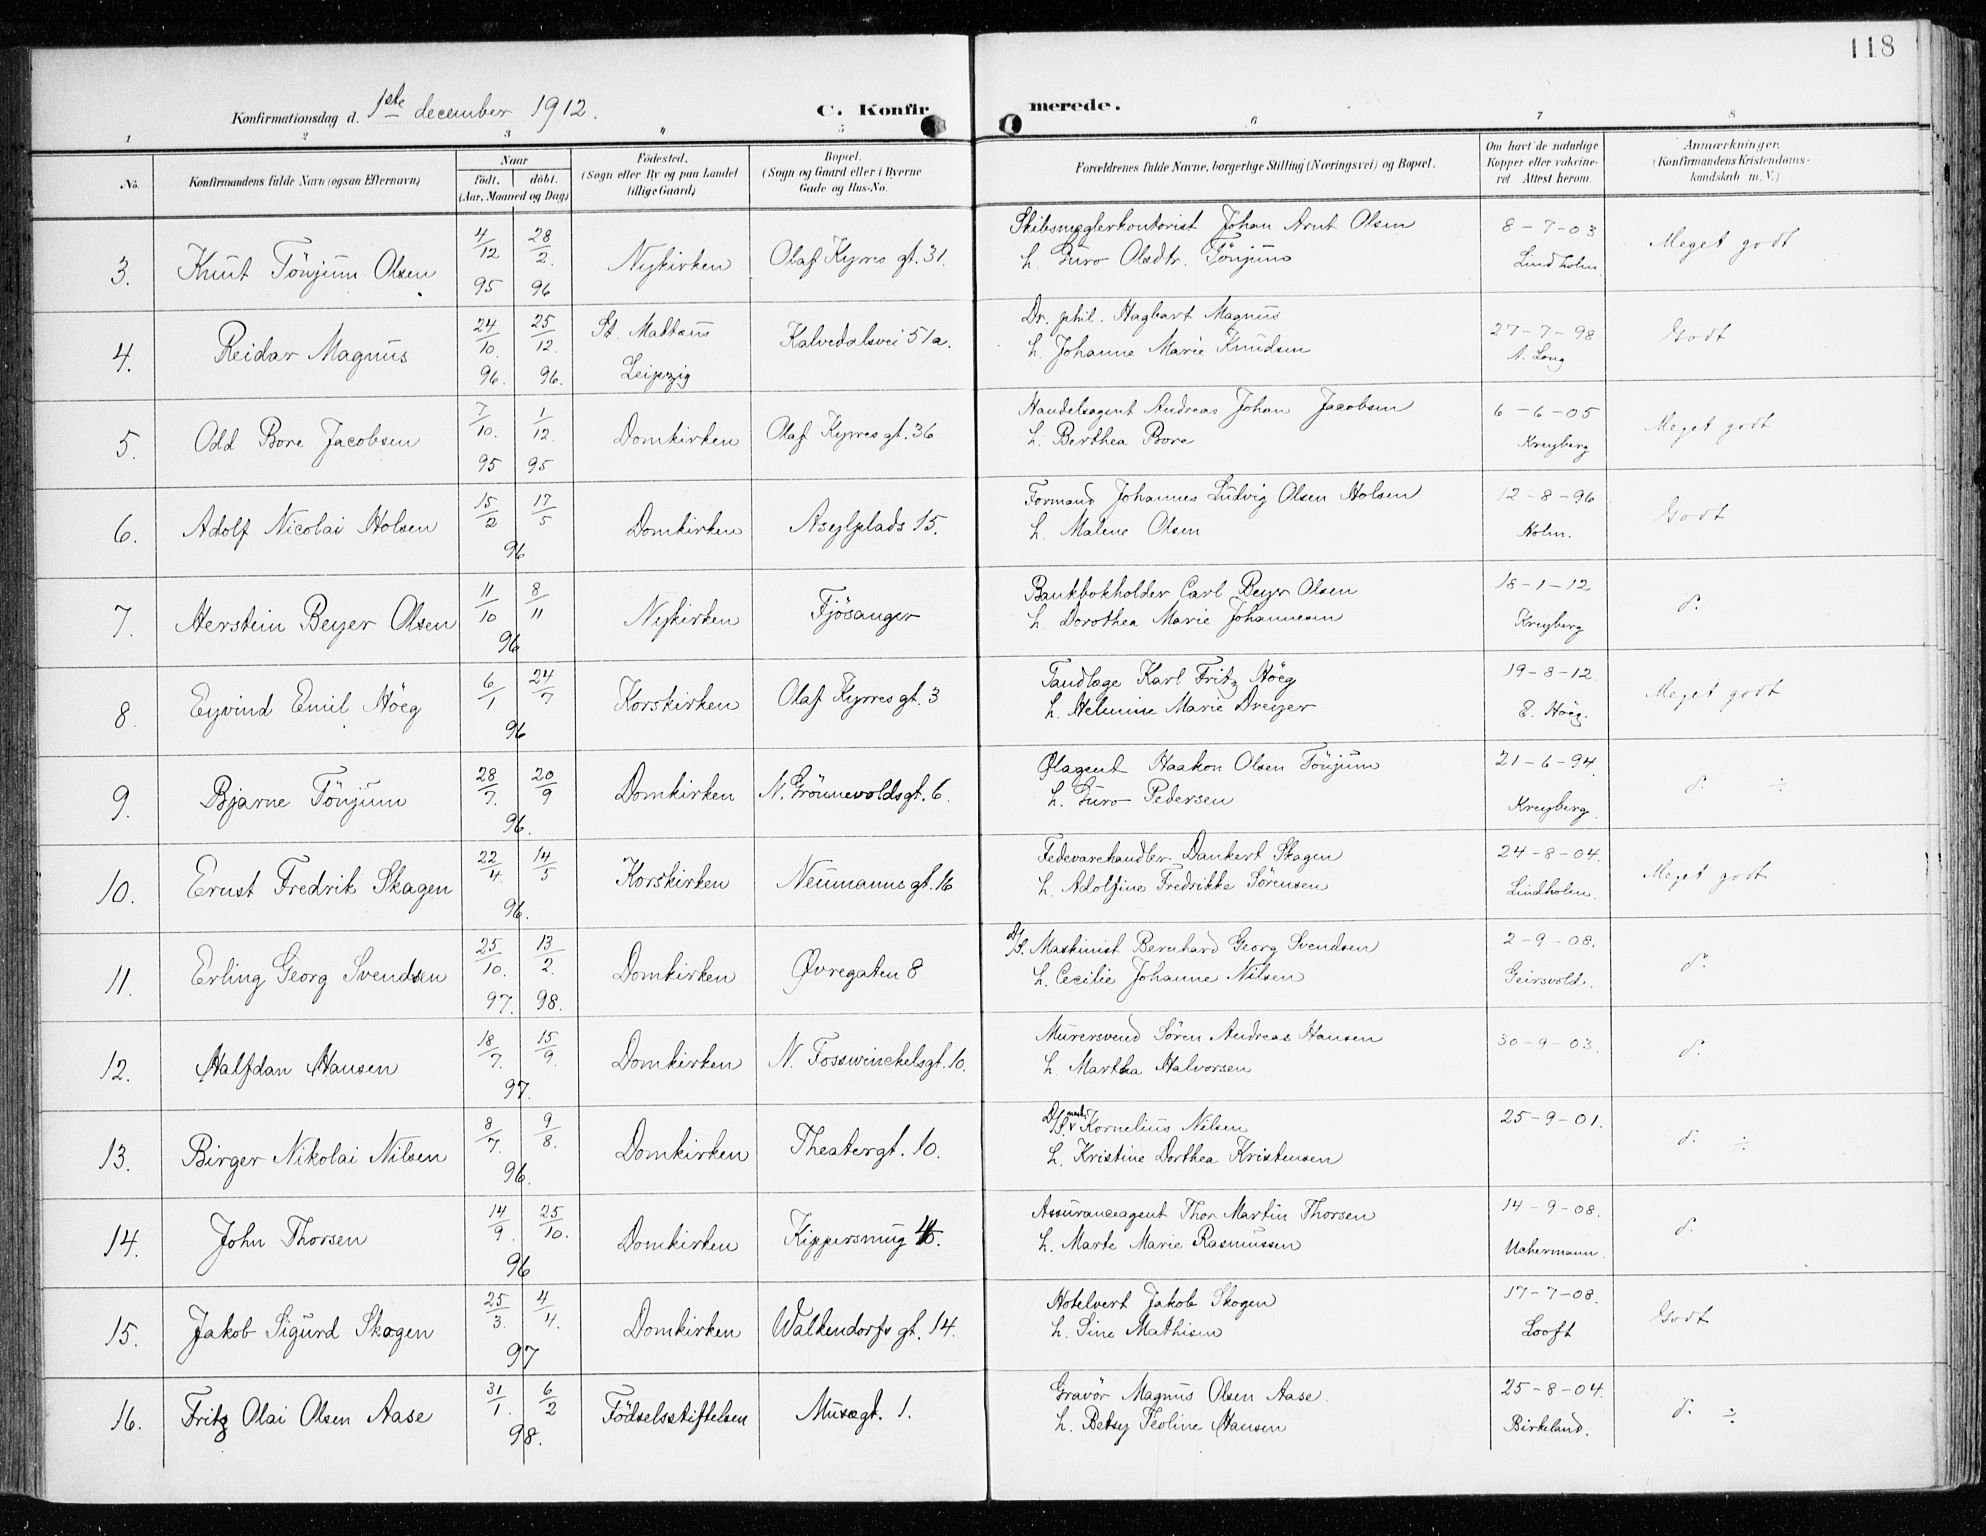 118
Konfirmationsdag d. 1ste december 1912.
C. Konfirmerede.
1 2 3 4 5 6 7 8
No.
Konfirmandens fulde Navn (ogsaa Efternavn)
Naar
født. døbt.
(Aar, Maaned og Dag)
Fødested.
(Sogn eller By og paa Landet
tillige Gaard)
Bopæl.
(Sogn og Gaard eller i Byerne
Gade og Hus-No.
Forældrenes fulde Navne, borgerlige Stilling (Næringsvei) og Bopæl.
Om havt de naturlige
Kopper eller vakcine-
ret. Attest herom.
Anmærkninger.
(Konfirmandens Kristendoms-
kundskab m. V.)
3. Knut Tönjum Olsen 4/12 95 28/2. 96 Nykirken Olaf Kyrres gt. 31.
Skibsmæglerkontorist Johan Arnt Olsen
h. Guro Olsdtr. Tönjum
8-7-03
Lindholm.
Meget godt
4. Reidar Magnus 24/10. 96. 25/12. 96. St. Mattæus
Leipzig
Kalvedalsvei 51a.
Dr. phil. Hagbart Magnus
h. Johanne Marie Knudsen
27-7-98
A. Long
Godt
5. Odd Bore Jacobsen 7/10. 95 1/12. 95 Domkirken Olaf Kyrres gt. 36
Handelsagent Andreas Johan Jacobsen
h. Berthea Bore
6-6-05
Kreyberg
Meget godt
6. Adolf Nicolai Holsen 15/2 17/5 96 Domkirken Asylplads 15.
Formand Johannes Ludvig Olsen Holsen
h. Malene Olsen
12-8-96
Holm.
Godt
7. Herstein Beyer Olsen 11/10 8/11 96 Nykirken Fjösanger
Bankbokholder Carl Beyer Olsen
h. Dorothea Marie Johannesen
18-1-12
Kreyberg
d.
8. Eyvind Emil Höeg 6/1 24/7 96 Korskirken Olaf Kyrres gt. 3
Tandlæge Karl Fritz Höeg
h. Helmine Marie Dreyer
19-8-12
E. Höeg.
Meget godt
9. Bjarne Tönjum 28/7. 20/9 96. Domkirken N. Grönnevoldsgt. 6.
Ølagent Haakon Olsen Tönjum
h. Guro Pedersen
21-6-94.
Kreyberg.
d. ÷
10. Ernst Fredrik Skagen 22/4. 14/5 96. Korskirken Neumanns gt. 16
Fedevarehandler Dankert Skagen
h. Adolfine Fredrikke Sörensen
24-8-04.
Lindholm.
Meget godt
11. Erling Georg Svendsen 25/10. 97. 13/2. 98. Domkirken Øvregaten 8
D/S. Maskinist Bernhard Georg Svendsen
h. Cecilie Johanne Nilsen
2-9-08.
Geirsvold.
d.
12. Halfdan Hansen 18/7. 15/9. 97. Domkirken N. Fosswinckelsgt. 10.
Murersvend Sören Andreas Hansen
h. Martha Halvorsen
30-9-03.
d.
13. Birger Nikolai Nilsen 8/7. 9/8. 96. Domkirken Theatergt. 10.
D/S. Kornelius Nilsen
h. Kristine Dorthea Kristensen
25-9-01.
d. ÷
14. John Thorsen 14/9. 25/10. 96 Domkirken Kippersmug
Assuranceagent Thor Martin Thorsen
h. Marte Marie Rasmussen
14-9-08.
Uchermann.
d.
15. Jakob Sigurd Skogen 25/3. 4/4. 97 Domkirken Walkendorfs gt. 14.
Hotelvert Jakob Skogen
h. Sine Mathisen
17-7-08.
Looft
Godt
16. Fritz Olai Olsen Aase 31/1. 6/2 98. Födselsstiftelsen Musægt. 1.
Gravör Magnus Olsen Aase.
h. Betsy Teoline Hansen
25-8-04.
Birkeland.
d. ÷